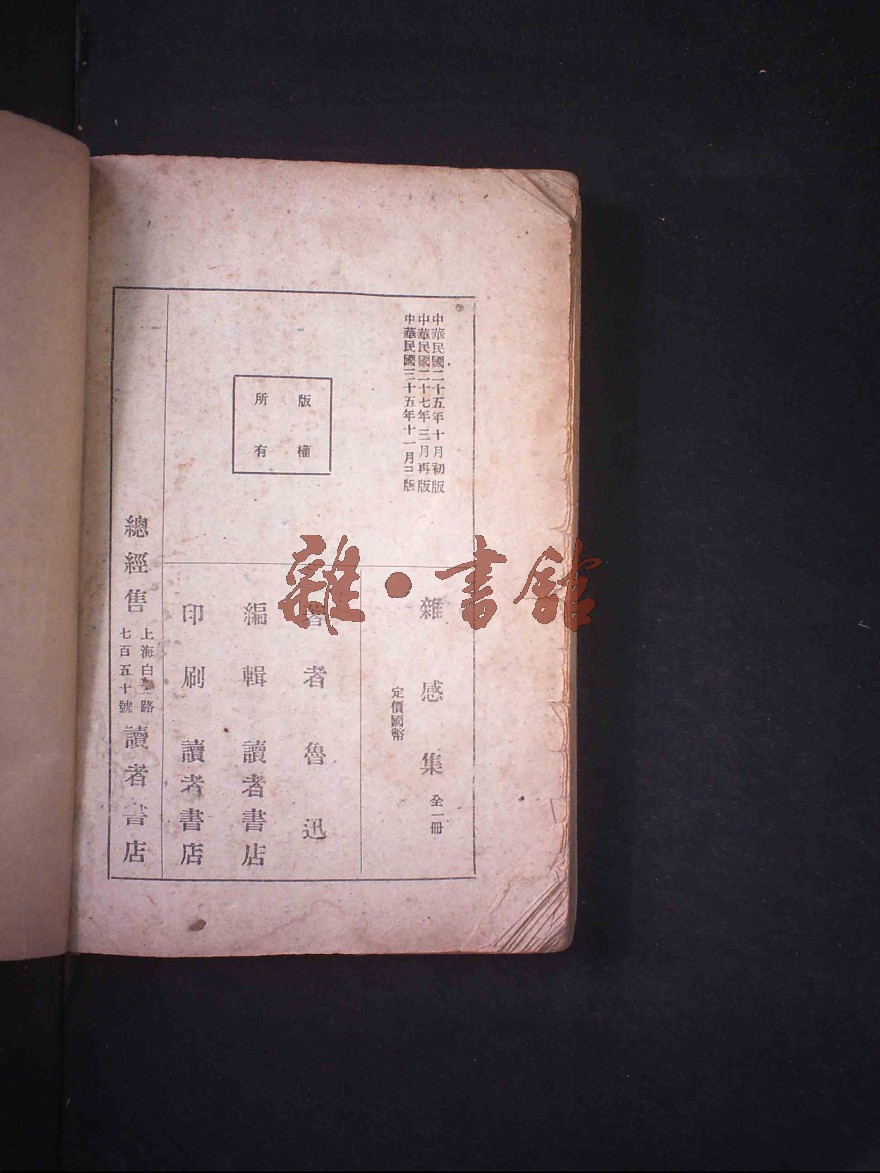 中華民國二十五年十月初版
中華民國二十七年三月再版
中華民國三十五年十一月三版
版權
所有
雜感集 全一冊
定價國幣
著者 魯迅
編輯 讀者書店
印刷 讀者書店
總經售
上海白
路
七百五十號
讀者書店
雜·書館